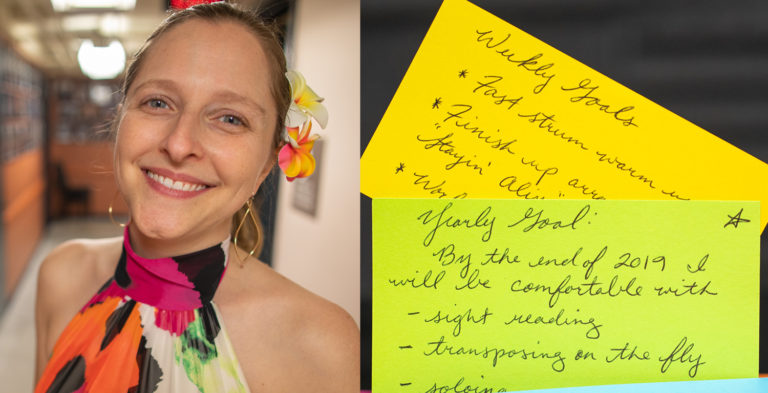 Weekly Goals
* Fast strum warm u
* Finish up arra
"Stayin' Aliv
*
Yearly Goal:
By the end of 2019 I
will be comfortable with
- sight reading
- transposing on the fly
- soloing